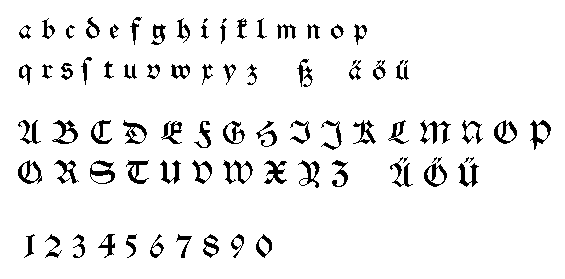 a b c d e f g h i j k l m n o p
q r s ſ t u v w x y z ß ä ö ü
A B C D E F G H I J K L M N O P
Q R S T U V W X Y Z Ä Ö Ü
1 2 3 4 5 6 7 8 9 0